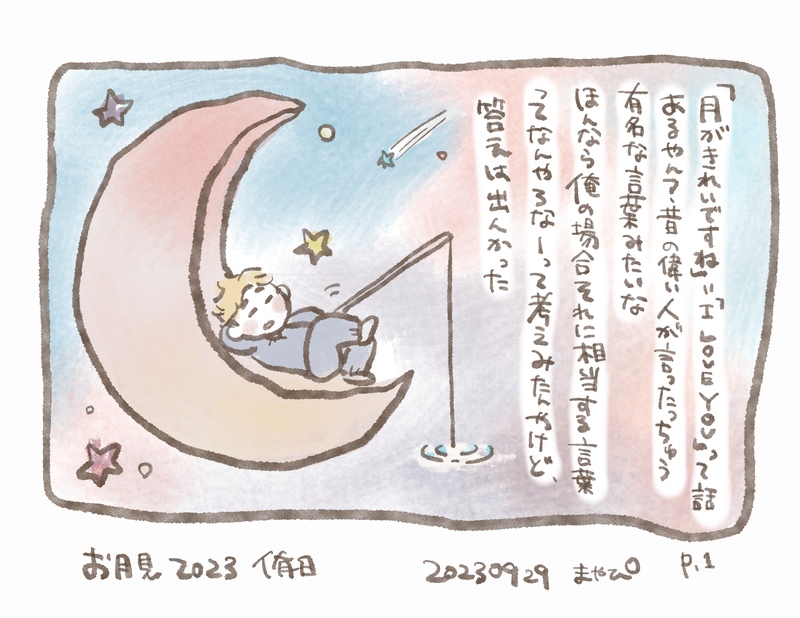 「月がきれいですね」=「I LOVE YOU」って話
あるやんて、昔の偉い人が言ったっちゅう
有名な言葉みたいな
ほんなら俺の場合それに相当する言葉
ってなんやろなーって考えみたんやけど、
答えは出んかった
お月見2023 侑日
20230929 まやぴ P.1